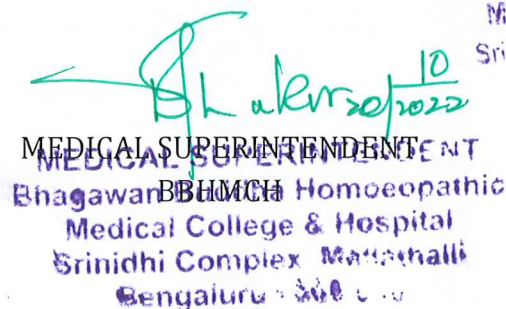 M
Sri
20/10/2022
MEDICAL SUPERINTENDENT
BBHMCH
MEDICAL SUPERINTENDENT
Bhagawan Buddha Homoeopathic
Medical College & Hospital
Srinidhi Complex
Bengaluru